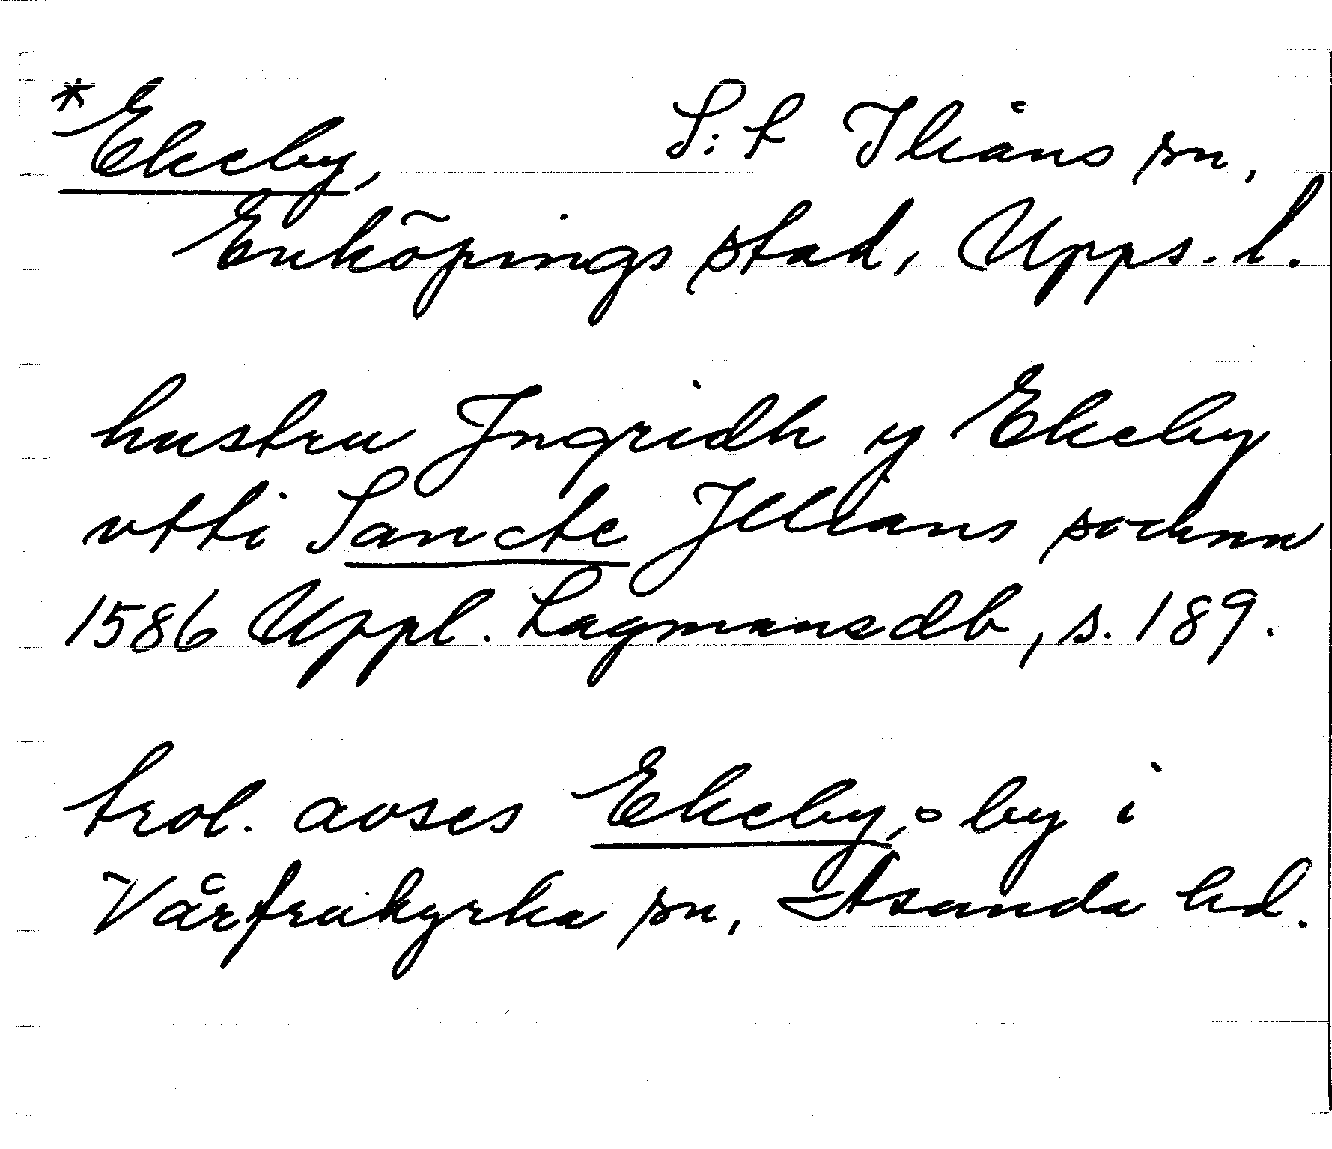 *Ekeby, S:t Ilians sn,
Enköpings stad, Upps. l.
hustru Jngridh y Ekeby
vtti Sancte Jllians sochnn
1586 Uppl. Lagmansdb, s. 189.
trol. avses Ekeby, by i
Vårfrukyrka sn, Åsunda hd.